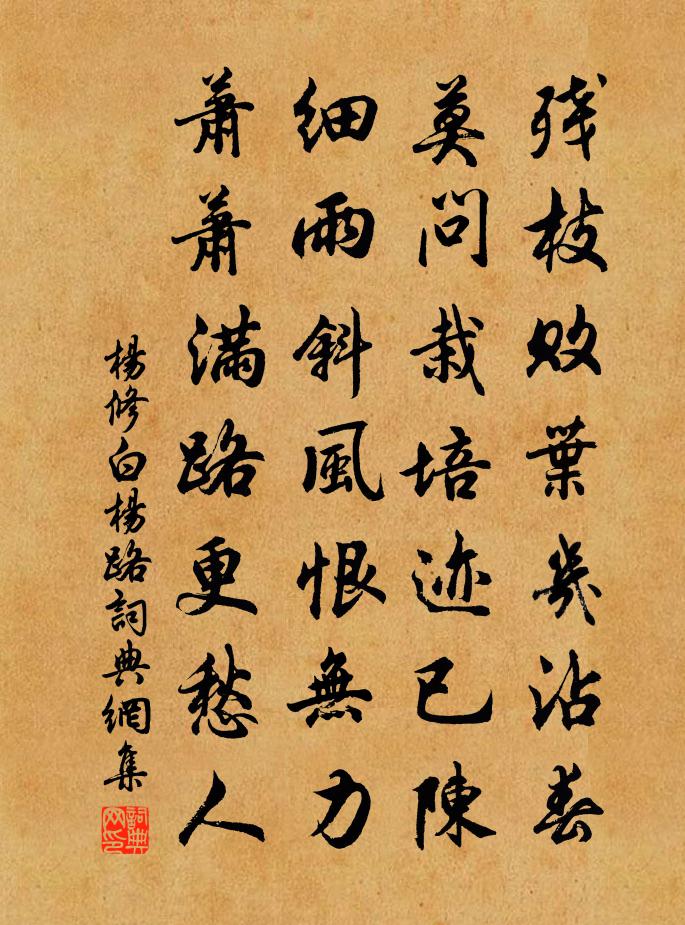 残枝败葉幾沾春
莫问栽培迹已陳
细雨斜風恨無力
萧萧满路更愁人
楊修白楊路詞典網集
詞典网印